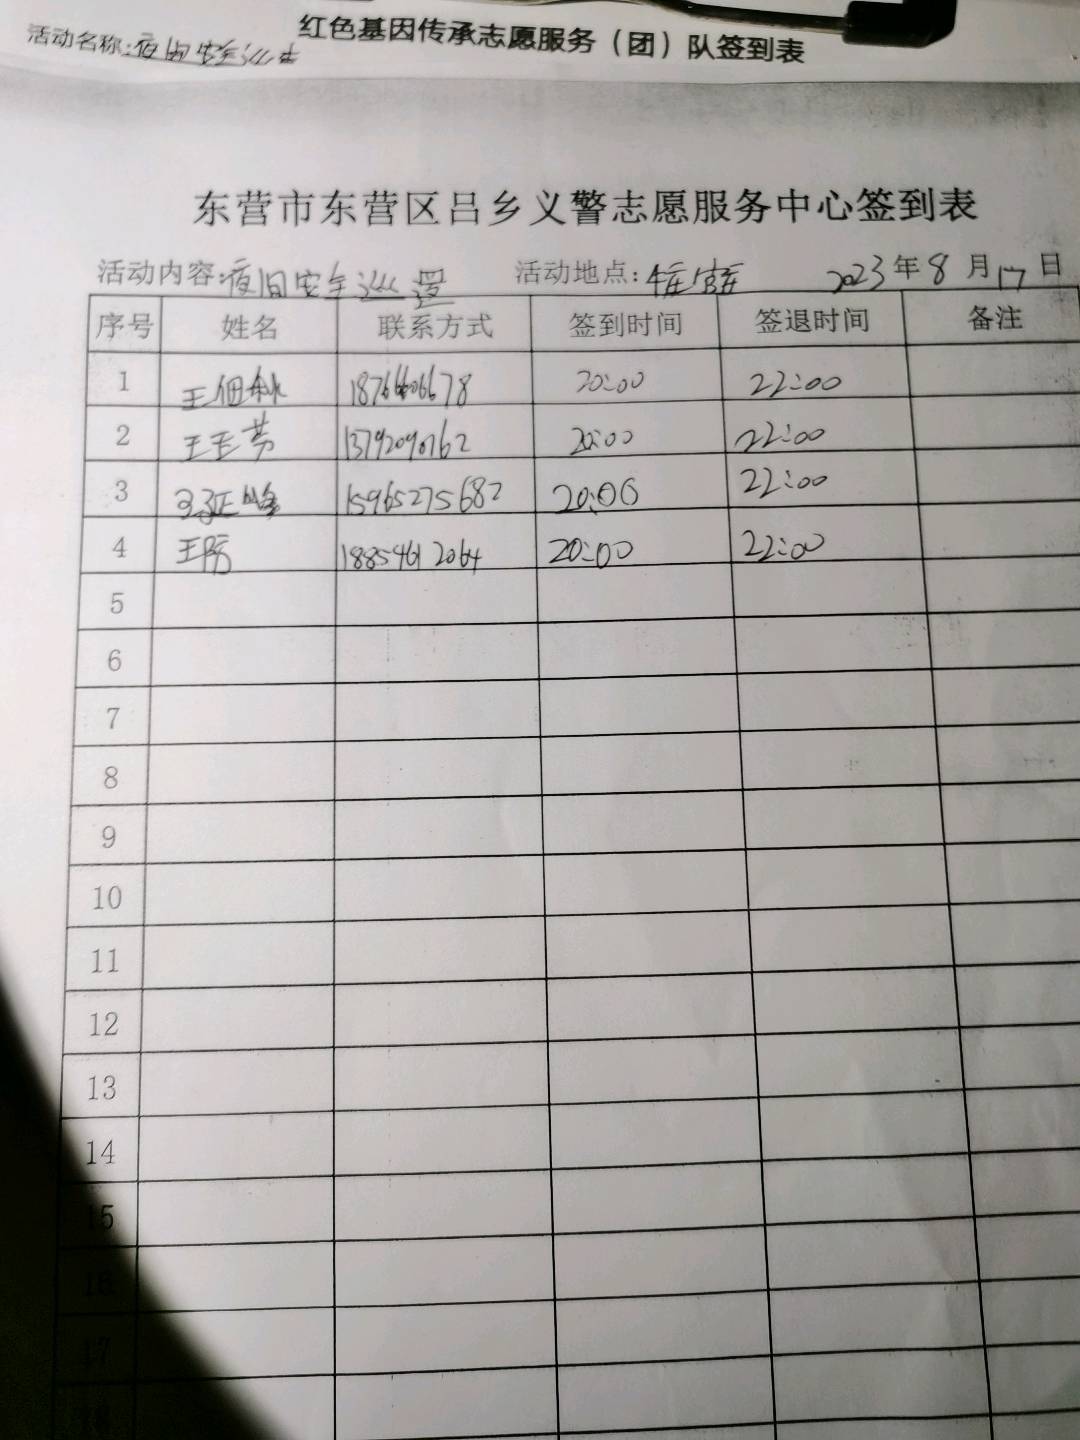 红色基因传承志愿服务（团）队签到表
活动名称:夜间安全巡
东营市东营区吕乡义警志愿服务中心签到表
活动内容:夜间安全巡逻 活动地点: 2023年8月17日
序号 姓名 联系方式 签到时间 签退时间 备注
1 王 20:00 22:00
2 王 13792090762 20:00 22:00
3 15965275682 20:00 22:00
4 王 18854612064 20:00 22:00
5
6
7
8
9
10
11
12
13
14
15
16
17
18